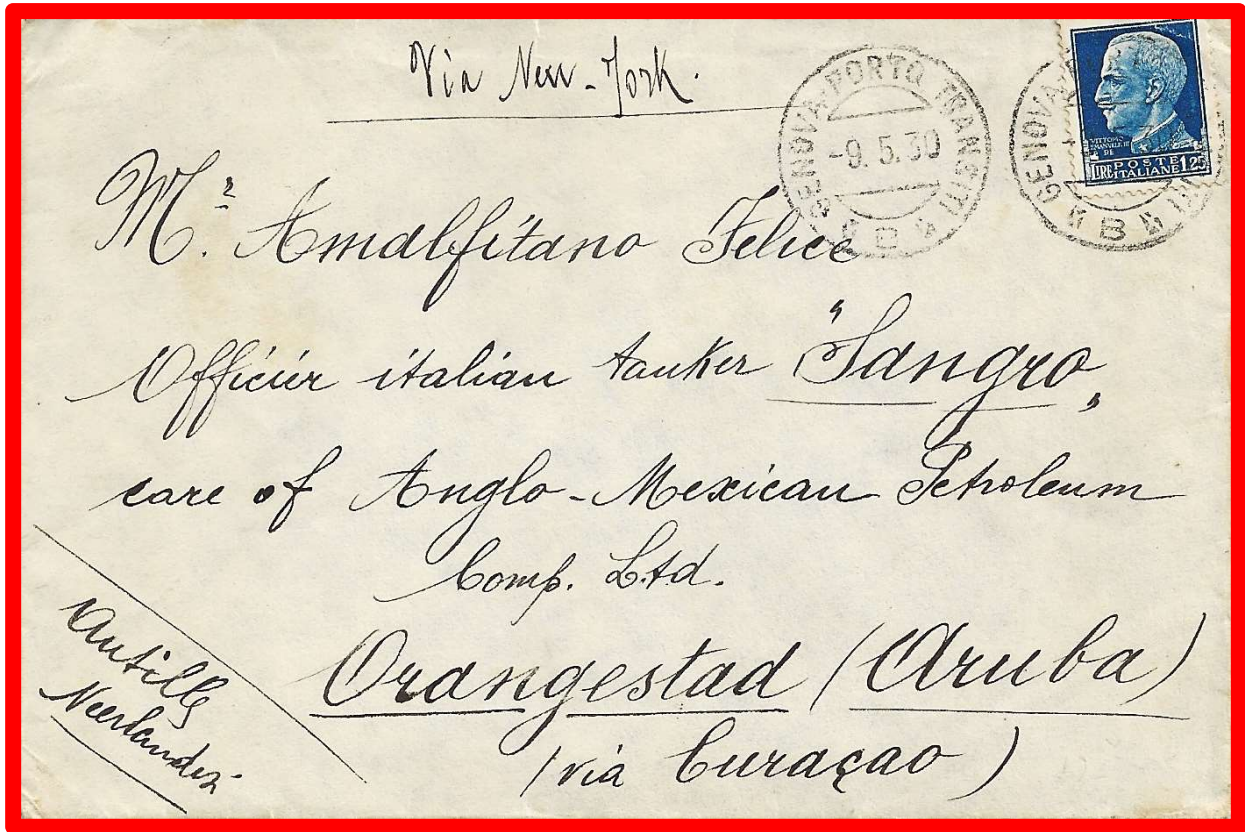 Via New-York.
GENOVA-PORTO TRANSITI
-9.5.30
B
GENOVA
B
VITTORIO
EMANUELE III
RE
LIRE POSTE ITALIANE 1,25
Mr. Amalfitano Felice
Officier italian tanker "Sangro„
care of Anglo-Mexican Petroleum
Comp. Ltd.
Orangestad (Aruba)
(via Curaçao)
Antilles
Neerlandes.